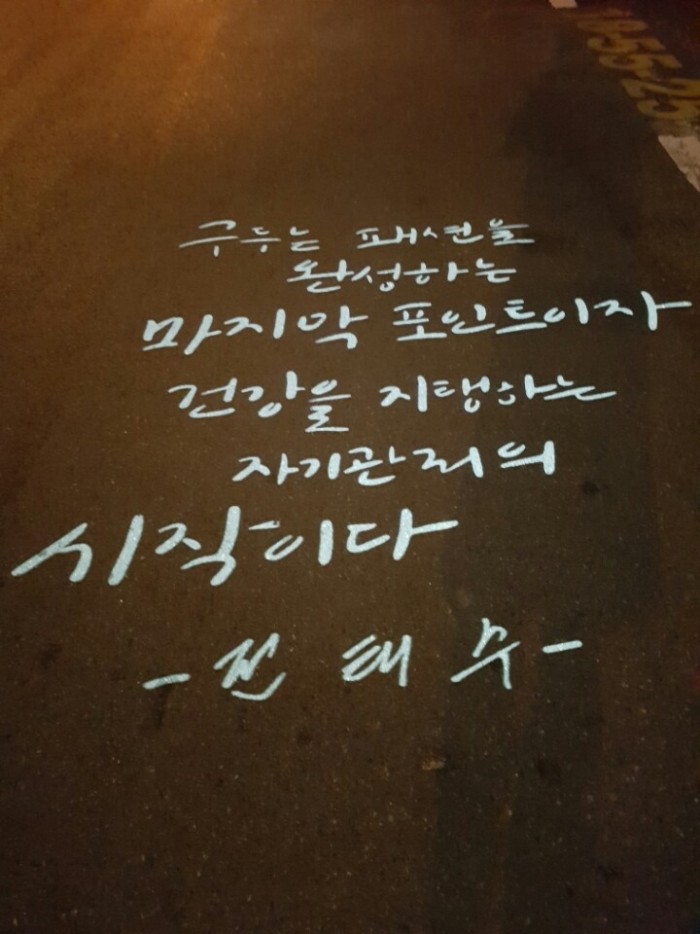 구두는 패션을
완성하는
마지막 포인트이자
건강을 지탱하는
자기관리의
시작이다
- 전 태 수 -